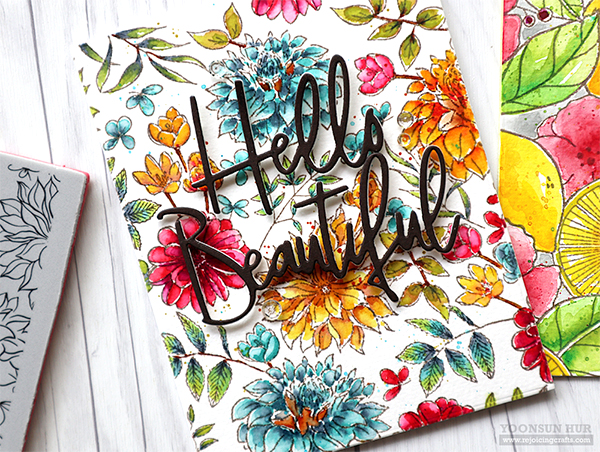 Hello
Beautiful
YOONSUN HUR
www.rejoicingcrafts.com